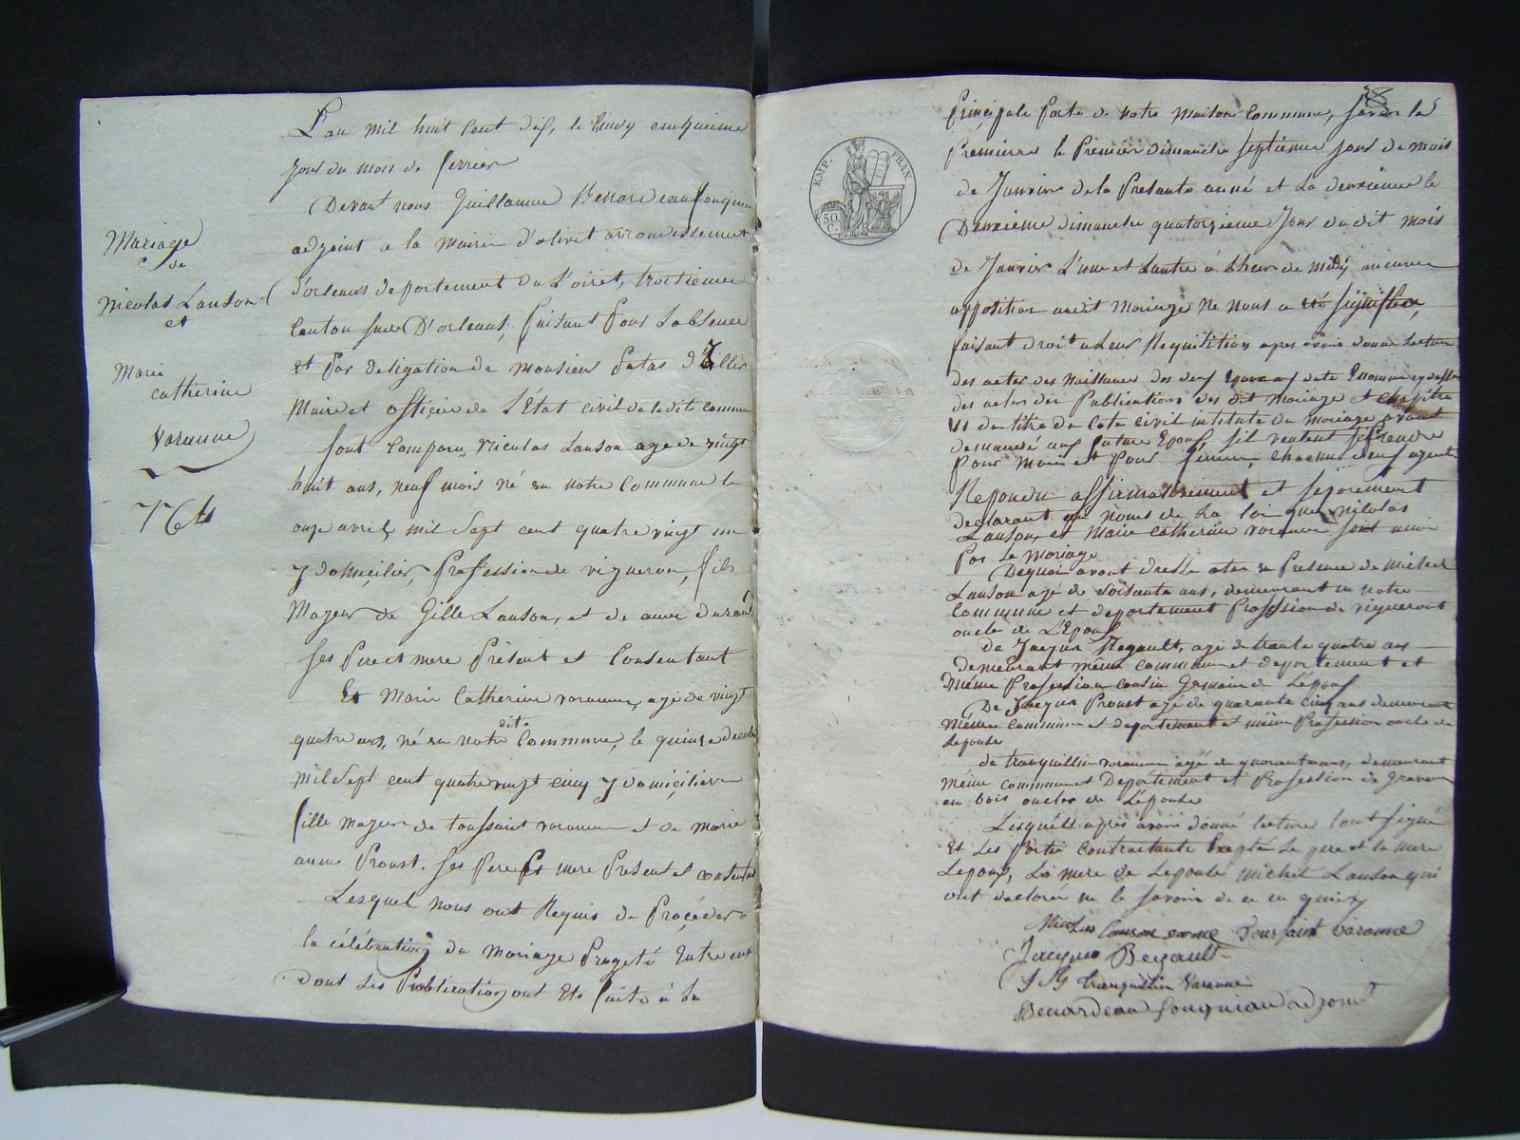 Mariage
de
Nicolas Lanson
et
Marie
catherine
Varanne
L'an mil huit Cent dix, le
Jour du mois de fevrier
Devant nous Guillaume Benard
adjoint a la mairie d'olivet arrondissement
D'orleans departement du Loiret, troisieme
Canton sud D'orleans, faisant Pour Labsence
et Par deligation de monsieur Patas
Maire et officier de L'Etat Civil de ladite commune
Sont Comparu, Nicolas Lanson age de vingt
huit ans, neuf mois né en notre Commune le
onze avril mil Sept cent quatre vingt un
y domicilier, Profession de vigneron, fils
Majeur de Gille Lanson, et de anne
Ses Pere et mere Présent et Consentant
Et Marie Catherine varanne, age de vingt
quatre ans, né en notre dite Commune, le quinze
mil Sept cent quatre vingt cinq y domicilier
fille majeur de toussaint varanne et de marie
anne Proust. Ses Pere et mere Présent et
Lesquel nous ont Requis de Proçéder a
la célébration du mariage Progeté Entre eux
dont Les Publication ont Eté faite à la
58
Principale Porte de notre maison Commune, Savoir la
Premierre le Premier dimanche Septieme Jour du mois
de Janvier de la Presante anné et La deuxieme le
Deuxieme dimanche quatorzieme Jour du dit mois
de Janvier L'une et Lautre à Lheure de midy aucune
opposition audit Mariage ne nous a été Signifiée,
faisant droit a Leur Requisition apres avoir donné Lecture
des actes des Naissances des deux
des actes des Publications des dit mariage et chapitre
VI du titre du Code civil intitulé du mariage avons
demandé aux future Epoux s'il veulent se Prendre
Pour Mari et Pour femme, chacun d'eux ayant
Repondu affirmativement et séparement
declarant au Nome de La loi que Nicolas
Lanson, et Marie Catherine varanne sont unie
Par Le Mariage
Dequoi avont dressé acte en Présence de michel
Lanson agé de Soixante ans, demeurant en notre
Commune et departement Profession de vigneront
oncle de L'Epoux
de Jacques Regault, agé de trante quatre ans
demeurant même commune et departement et
même Profession cousin Germain de L'époux
De Jacques Proust agé de quarante Cinq ans demeurant
même commune et departement et même Profession oncle de
Lepouse
de tranquillin varanne agé de quarant ans, demeurant
même commune et Departement et Profession de Graveur
en bois oncle de L'épouse
Lesquels après avoir donné lecture l'ont signé
Et Les Partie Contractante Exepté Le Pere et la mere
Lepoux, La mere de Lepouse michel Lanson qui
ont declaré ne le Savoir de ce en quis
EMP. FRAN.
50
C.
Nicolas Toussaint Varanne
Jacques Regault
Tranquillin Varanne